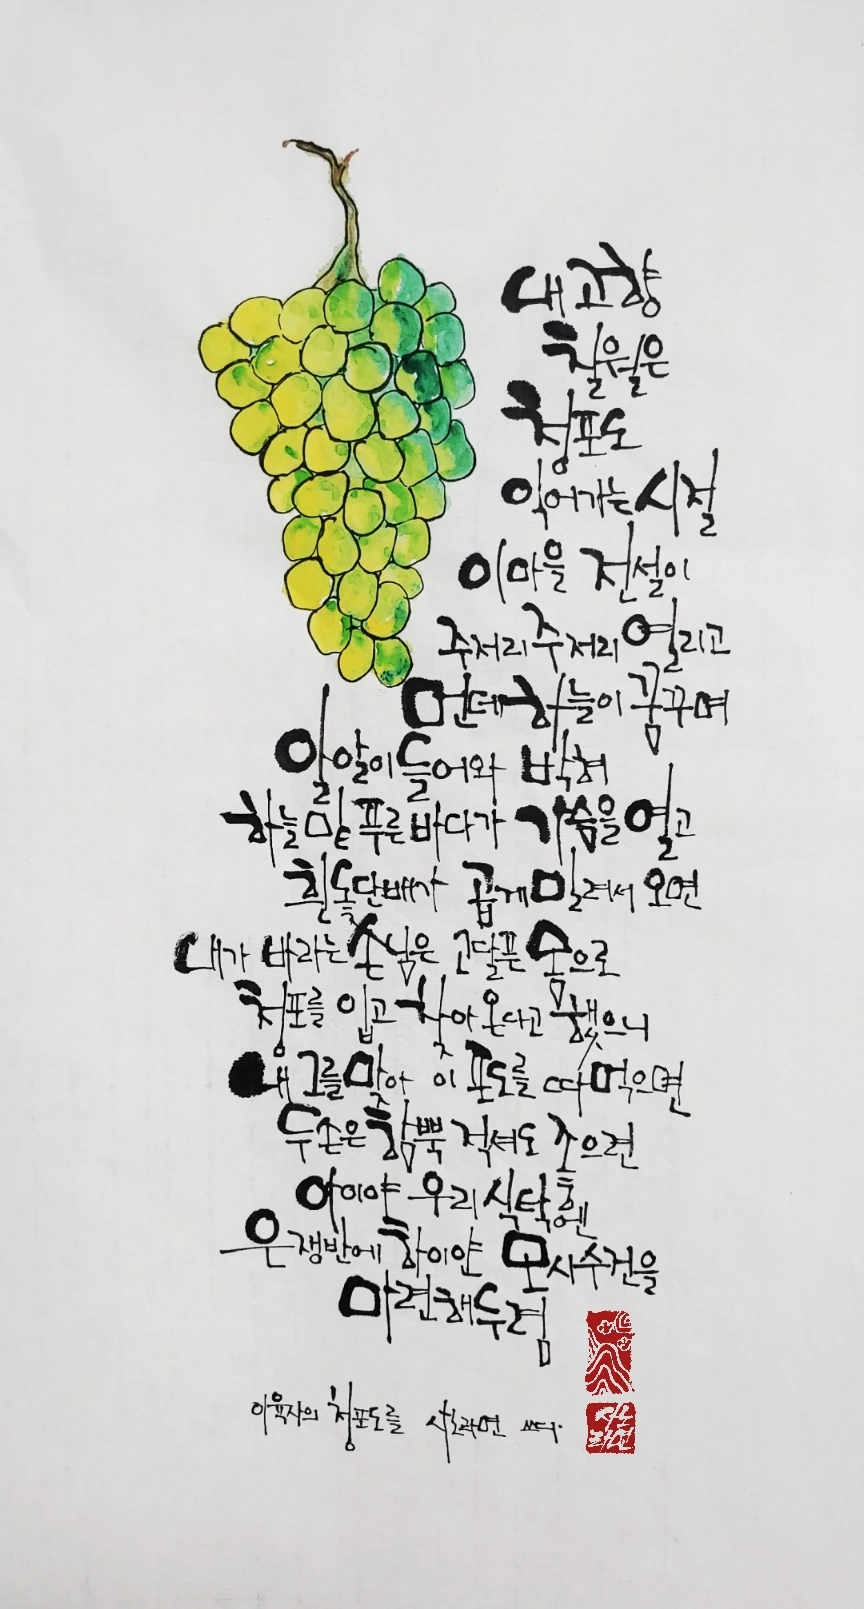 내 고향
칠월은
청포도
익어가는 시절
이 마을 전설이
주저리주저리 열리고
먼데 하늘이 꿈꾸며
알알이 들어와 박혀
하늘 밑 푸른 바다가 가슴을 열고
흰 돛단배가 곱게 밀려서 오면
내가 바라는 손님은 고달픈 몸으로
청포를 입고 찾아 온다고 했으니
내 그를 맞아 이 포도를 따 먹으면
두 손은 함뿍 적셔도 좋으련
아이야 우리 식탁엔
은쟁반에 하이얀 모시수건을
마련해 두렴
이육사의 청포도를 쓰다.